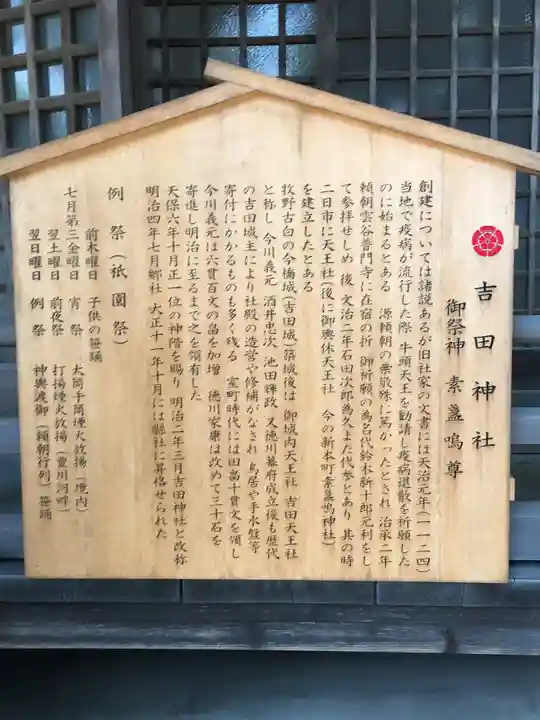 吉田神社
御祭神 素盞嗚尊
創建については諸説あるが旧社家の文書には天治元年(一一二四)
当地で疫病が流行した際 牛頭天王を勧請し疫病退散を祈願した
のに始まるとある 源頼朝の崇敬殊に篤かったとされ 治承二年
頼朝雲谷普門寺に在宿の折 御祈願の為名代鈴木新十郎元利をし
て参拝せしめ 後 文治二年石田次郎為久また代参とあり 其の時
二日市に天王社(後に御輿休天王社 今の新本町素盞嗚神社)
を建立したとある
牧野古白の今橋城(吉田城)築城後は 御城内天王社 吉田天王社
と称し 今川義元 酒井忠次 池田輝政 又徳川幕府成立後も歴代
の吉田城主により社殿の造営や修補がなされ 鳥居や手水盤等
寄付にかかるものも多く残る 室町時代には田畠十貫文を領し
今川義元は六貫百文の畠を加増 徳川家康は改めて三十石を
寄進し明治に至るまで之を領有した
天保六年十月正一位の神階を賜り 明治二年三月吉田神社と改称
明治四年七月郷社 大正十一年十月には県社に昇格せられた
例祭(祇園祭)
前木曜日 子供の笹踊
七月第三金曜日 宵祭 大筒手筒煙火放揚(境内)
翌土曜日 前夜祭 打揚煙火放揚(豊川河畔)
翌日曜日 例祭 神輿渡御(頼朝行列)笹踊